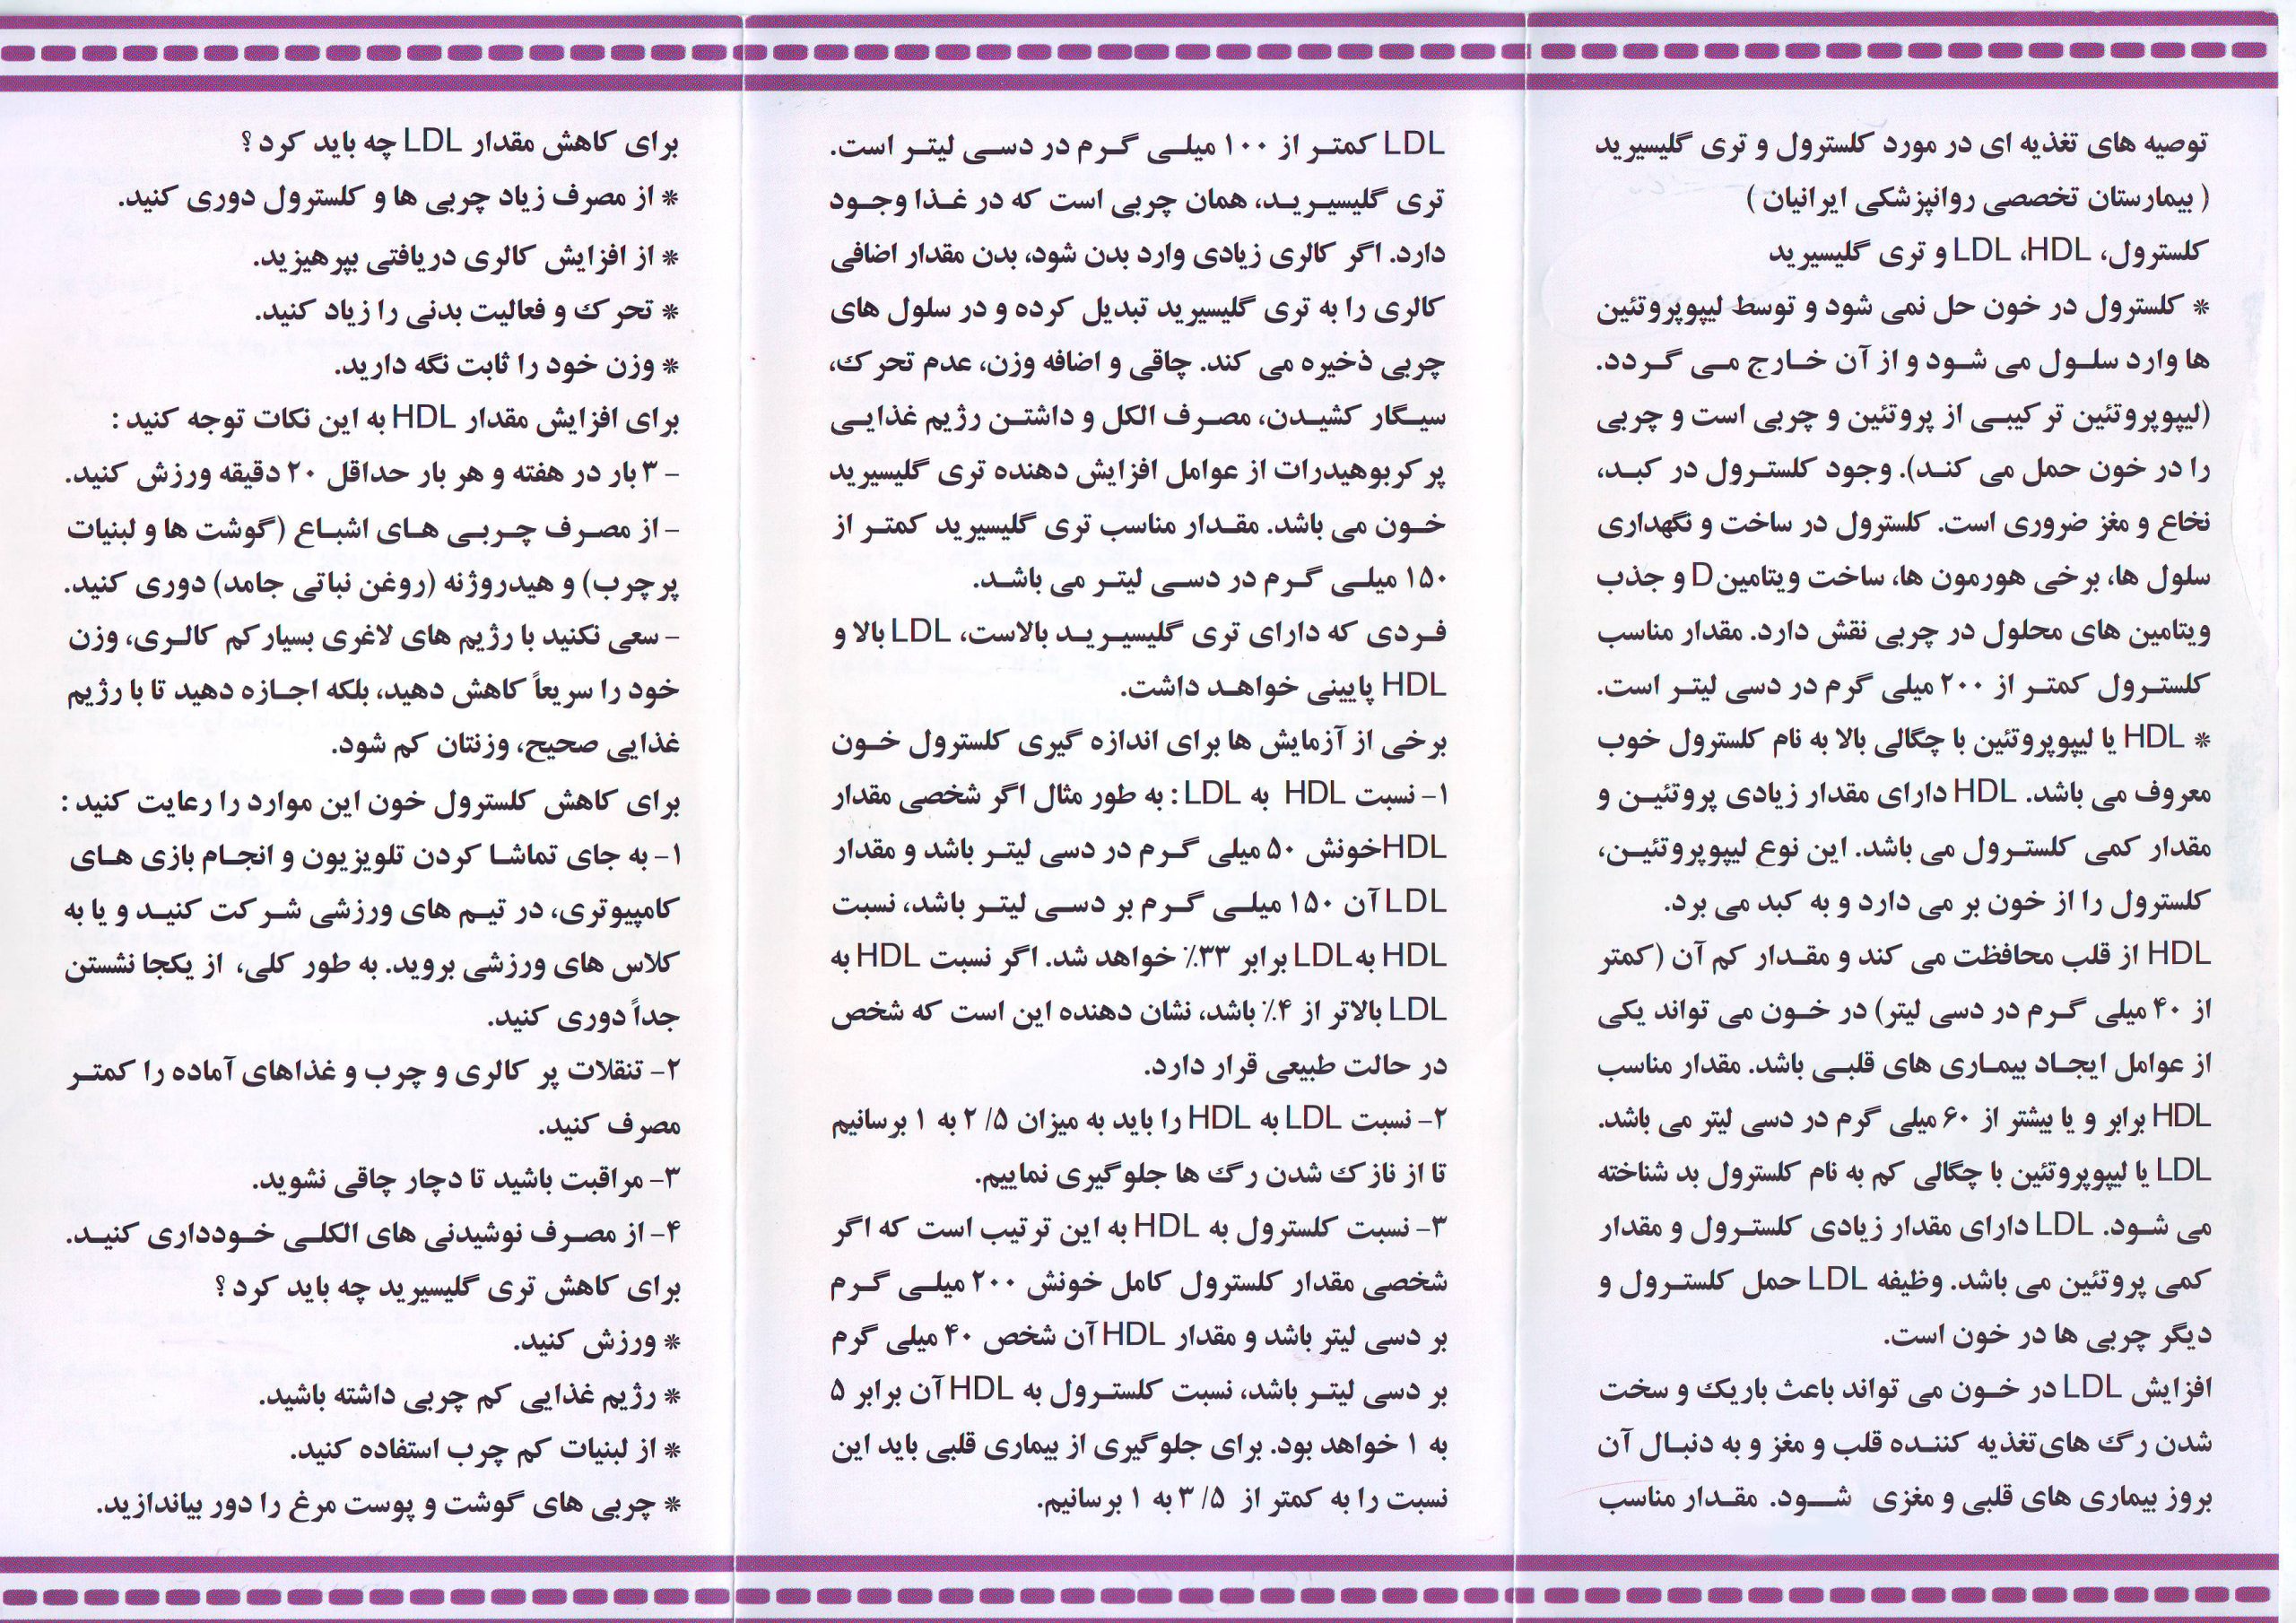 توصیه های تغذیه ای در مورد کلسترول و تری گلیسیرید
( بیمارستان تخصصی روانپزشکی ایرانیان )
کلسترول، LDL ،HDL و تری گلیسیرید
* کلسترول در خون حل نمی شود و توسط لیپوپروتئین
ها وارد سلـول می شـود و از آن خـارج مـی گـردد.
(لیپوپروتئین ترکیبـی از پروتئین و چربی است و چربی
را در خون حمل می کنـد). وجود کلستـرول در کبـد،
نخاع و مغز ضروری است. کلسترول در ساخت و نگهداری
سلول ها، برخی هورمون ها، ساخت ویتامین D و جذب
ویتامین های محلول در چربی نقش دارد. مقدار مناسب
کلستـرول کمتـر از ۲۰۰ میلی گرم در دسی لیتـر است.
* HDL یا لیپوپروتئین با چگالی بالا به نام کلسترول خوب
معروف می باشد. HDL دارای مقدار زیادی پروتئیـن و
مقدار کمی کلستـرول می باشد. این نوع لیپوپروتئیـن،
کلسترول را از خون بر می دارد و به کبد می برد.
HDL از قلب محافظت می کند و مقـدار کم آن (کمتر
از ۴۰ میلی گـرم در دسی لیتر) در خـون می تواند یکی
از عوامل ایجـاد بیمـاری های قلبـی باشد. مقدار مناسب
HDL برابر و یا بیشتر از ۶۰ میلی گرم در دسی لیتر می باشد.
LDL یا لیپوپروتئین با چگالی کم به نام کلسترول بد شناخته
می شـود. LDL دارای مقدار زیادی کلستـرول و مقدار
کمی پروتئین می باشد. وظیفه LDL حمل کلستـرول و
دیگر چربی ها در خون است.
افزایش LDL در خـون می تواند باعث باریک و سخت
شدن رگ های تغذیه کننـده قلب و مغز و به دنبـال آن
بروز بیماری های قلبی و مغزی شــود. مقـدار مناسب
LDL کمتـر از ۱۰۰ میلـی گـرم در دسـی لیتـر است.
تری گلیسیـریـد، همان چربی است که در غـذا وجـود
دارد. اگر کالری زیادی وارد بدن شود، بدن مقدار اضافی
کالری را به تری گلیسیرید تبدیل کرده و در سلول های
چربی ذخیره می کند. چاقی و اضافه وزن، عدم تحرک،
سیـگار کشیـدن، مصـرف الکل و داشتـن رژیم غذایـی
پر کربوهیدرات از عوامل افزایش دهنده تری گلیسیرید
خـون می باشد. مقـدار مناسب تری گلیسیرید کمتـر از
۱۵۰ میلـی گـرم در دسـی لیتـر می باشـد.
فـردی که دارای تری گلیسیـریـد بالاست، LDL بالا و
HDL پایینی خواهـد داشت.
برخی از آزمایش ها برای اندازه گیری کلسترول خـون
۱- نسبت HDL به LDL : به طور مثال اگر شخصی مقدار
HDL خونش ۵۰ میلی گـرم در دسی لیتـر باشد و مقدار
LDL آن ۱۵۰ میلـی گـرم بر دسـی لیتـر باشد، نسبت
HDL به LDL برابر ۳۳٪ خواهد شد. اگر نسبت HDL به
LDL بالاتر از ۴٪ باشد، نشان دهنده این است که شخص
در حالت طبیعی قرار دارد.
۲- نسبت LDL به HDL را باید به میزان ۵/ ۲ به ۱ برسانیم
تا از نازک شدن رگ ها جلوگیری نماییم.
۳- نسبت کلسترول به HDL به این ترتیب است که اگر
شخصی مقدار کلسترول کامل خونش ۲۰۰ میلـی گـرم
بر دسی لیتر باشد و مقدار HDL آن شخص ۴۰ میلی گرم
بر دسی لیتـر باشد، نسبت کلستـرول به HDL آن برابر ۵
به ۱ خواهد بود. برای جلوگیری از بیماری قلبی باید این
نسبت را به کمتر از ۵/ ۳ به ۱ برسانیم.
برای کاهش مقدار LDL چه باید کرد ؟
* از مصرف زیاد چربی ها و کلسترول دوری کنید.
* از افزایش کالری دریافتی بپرهیزید.
* تحرک و فعالیت بدنی را زیاد کنید.
* وزن خود را ثابت نگه دارید.
برای افزایش مقدار HDL به این نکات توجه کنید :
- ۳ بار در هفته و هر بار حداقل ۲۰ دقیقه ورزش کنید.
- از مصـرف چـربـی هـای اشبـاع (گوشت ها و لبنیات
پرچرب) و هیدروژنه (روغن نباتی جامد) دوری کنید.
- سعی نکنید با رژیم های لاغری بسیار کم کالـری، وزن
خود را سریعاً کاهش دهید، بلکه اجـازه دهید تا با رژیم
غذایی صحیح، وزنتان کم شود.
برای کاهش کلسترول خون این موارد را رعایت کنید :
۱- به جای تماشـا کردن تلویزیون و انجـام بازی هـای
کامپیوتری، در تیـم های ورزشی شـرکت کنیـد و یا به
کلاس های ورزشی بروید. به طور کلی، از یکجا نشستن
جداً دوری کنید.
۲- تنقلات پر کالری و چرب و غذاهای آماده را کمتـر
مصرف کنید.
۳- مراقبت باشید تا دچار چاقی نشوید.
۴- از مصـرف نوشیدنی های الکلـی خـودداری کنیـد.
برای کاهش تری گلیسیرید چه باید کرد ؟
* ورزش کنید.
* رژیم غذایی کم چربی داشته باشید.
* از لبنیات کم چرب استفاده کنید.
* چربی های گوشت و پوست مرغ را دور بیاندازید.